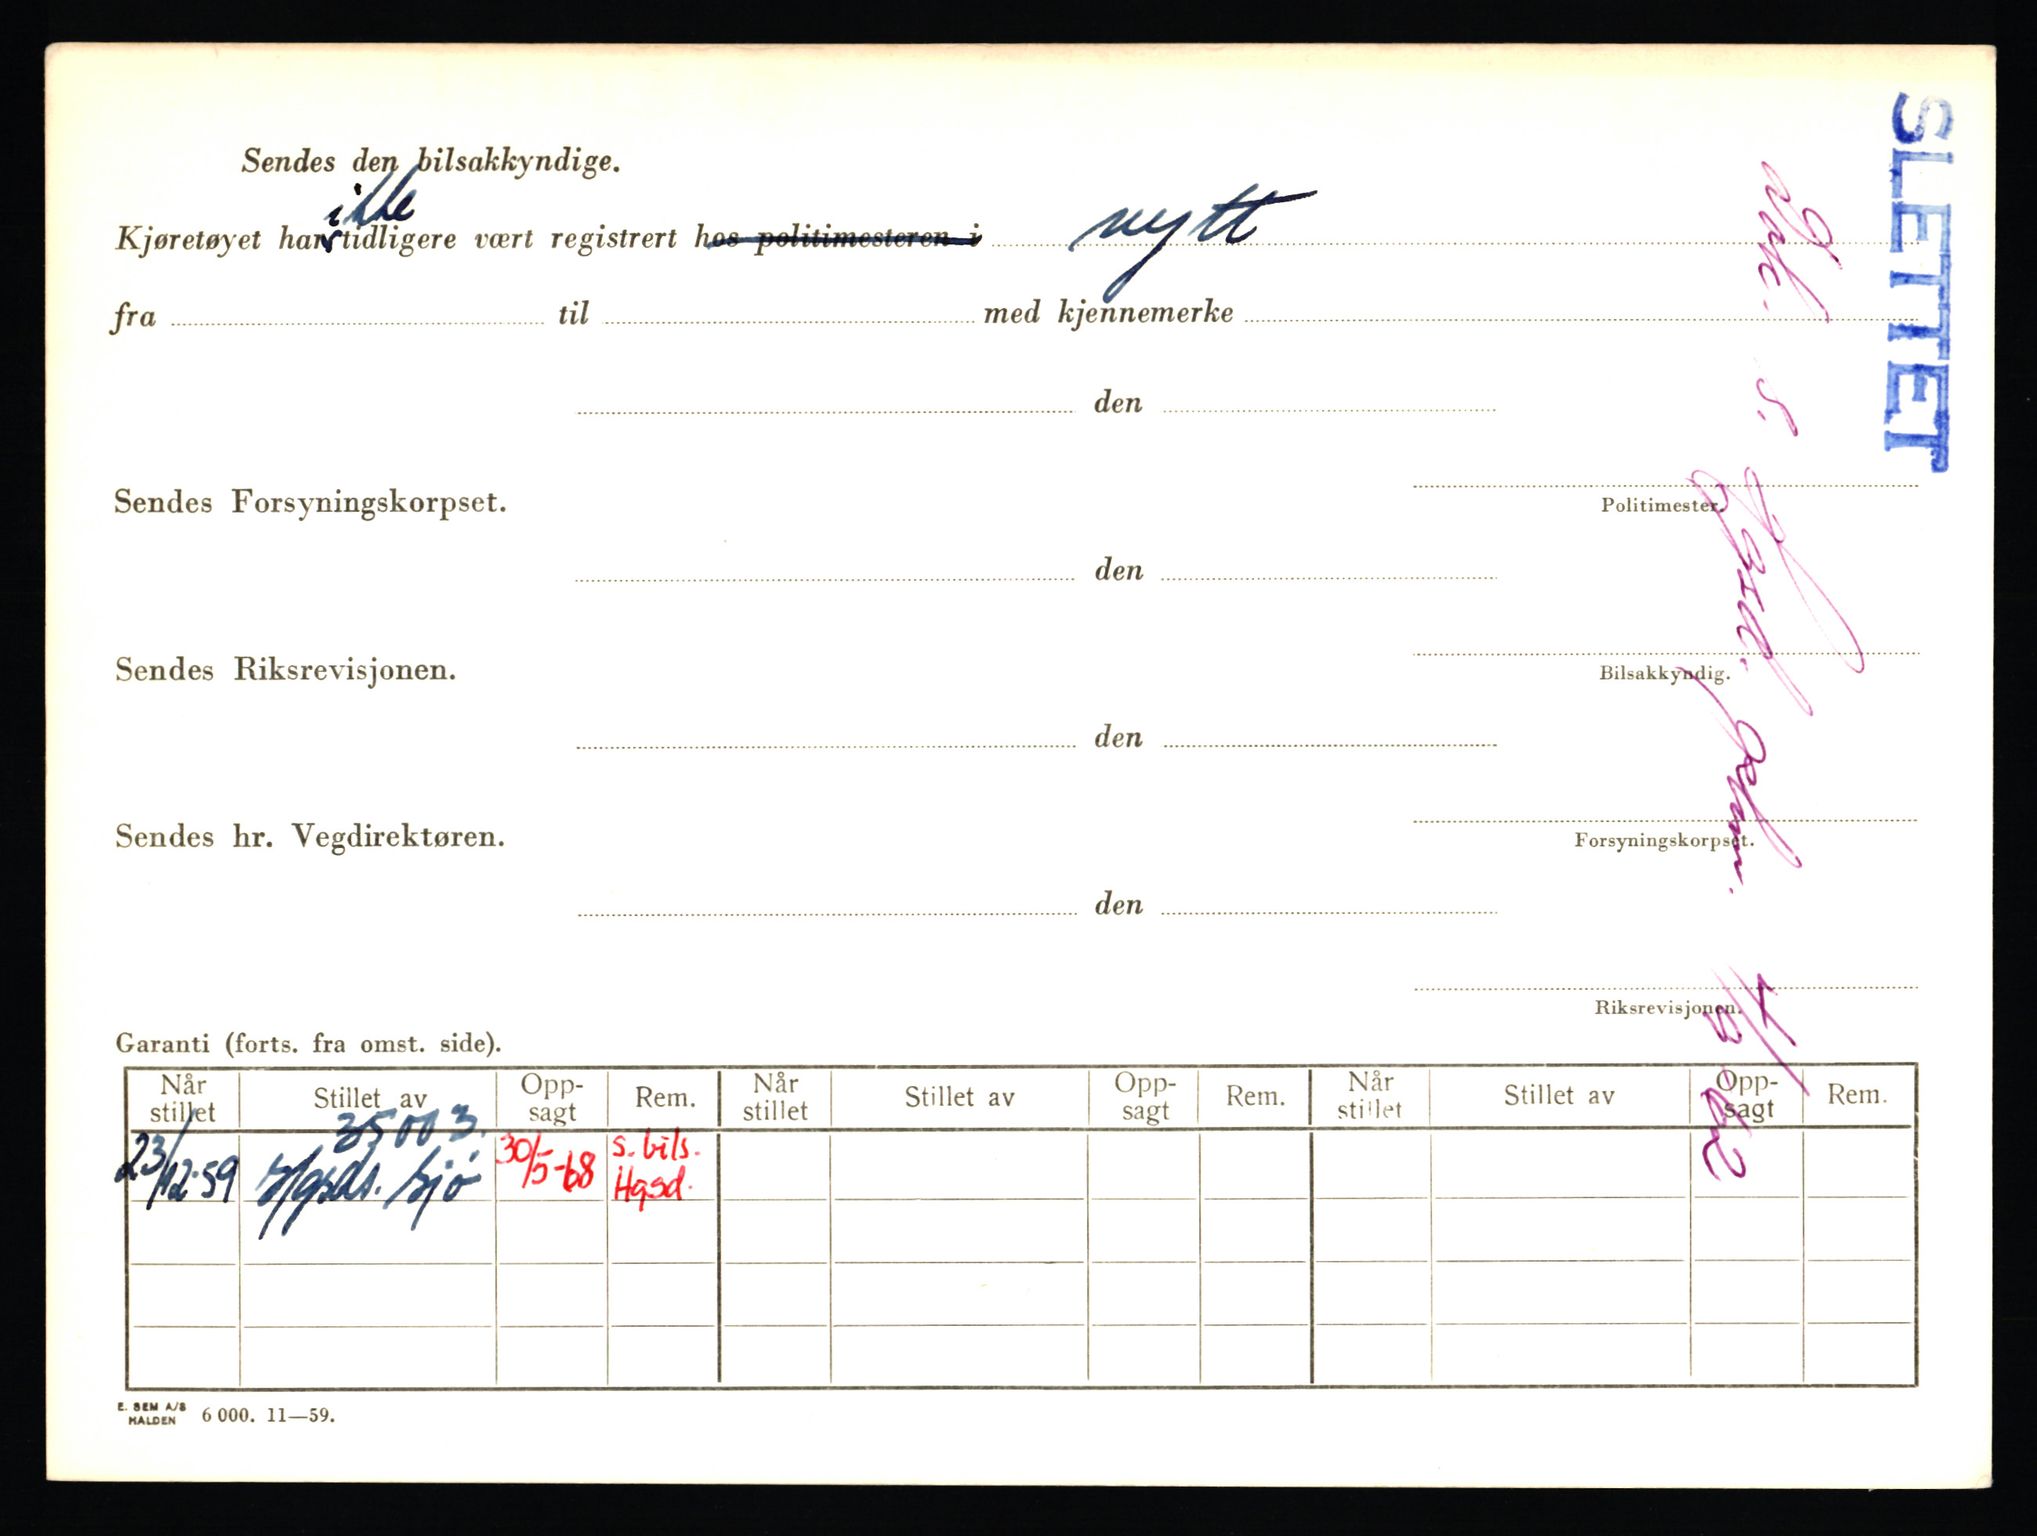 SLETTET
Sendes den bilsakkyndige.
ikke
Kjøretøyet har tidligere vært registrert hos politimesteren i nytt
fra til med kjennemerke
den
Politimester.
Sendes Forsyningskorpset.
den
Bilsakkyndig.
Sendes Riksrevisjonen.
den
Forsyningskorpset.
Sendes hr. Vegdirektøren.
den
Riksrevisjonen.
Garanti (forts. fra omst. side).
Når stillet Stillet av Opp-sagt Rem. Når stillet Stillet av Opp-sagt Rem. Når stillet Stillet av Opp-sagt Rem.
35003.
23/12-59 Hgsds. Sjø 30/5-68 s. bils. Hgsd.
E. SEM A/S HALDEN 6 000. 11—59.